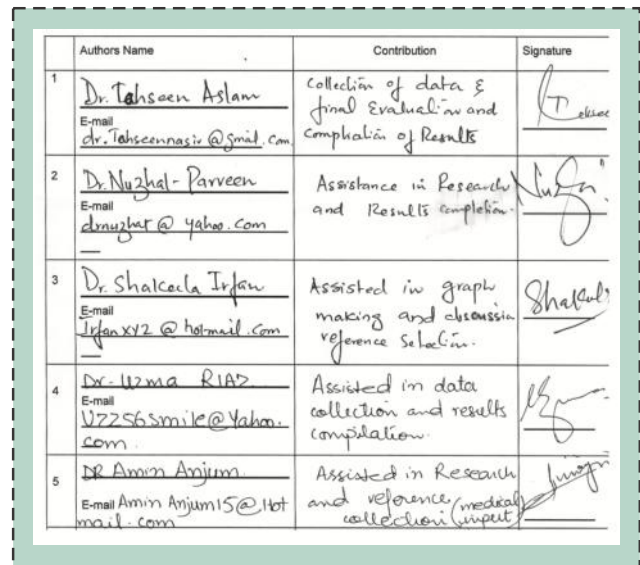 Authors Name Contribution Signature
1 Dr. Tahseen Aslam
E-mail
dr.Tahseennasir @ gmail.com
Collection of data &
final Evaluation and
Compilation of Results
2 Dr. Nuzhat- Parveen
E-mail
drnuzhat @ yahoo.com
Assistance in Research
and Results completion.
3 Dr. Shakeela Irfan
E-mail
Irfanxyz @ hotmail.com
Assisted in graph
making and discussion
reference Selection.
4 Dr- Uzma RIAZ
E-mail
smile@Yahoo.
com.
Assisted in data
collection and results
compilation.
5 DR Amin Anjum
E-mail Amin Anjum15@Hot
mail.com
Assisted in Research
and reference (medical
collection input